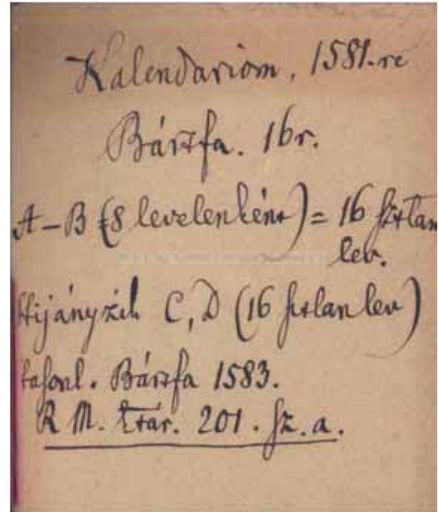 Kalendariom, 1581.re
Bártfa. 16r.
A-B (8 levelenként) = 16 sztlan
lev.
Hijányzik C, D (16 sztlan lev)
hasonl. Bártfa 1583.
R M. ktár. 201. sz. a.